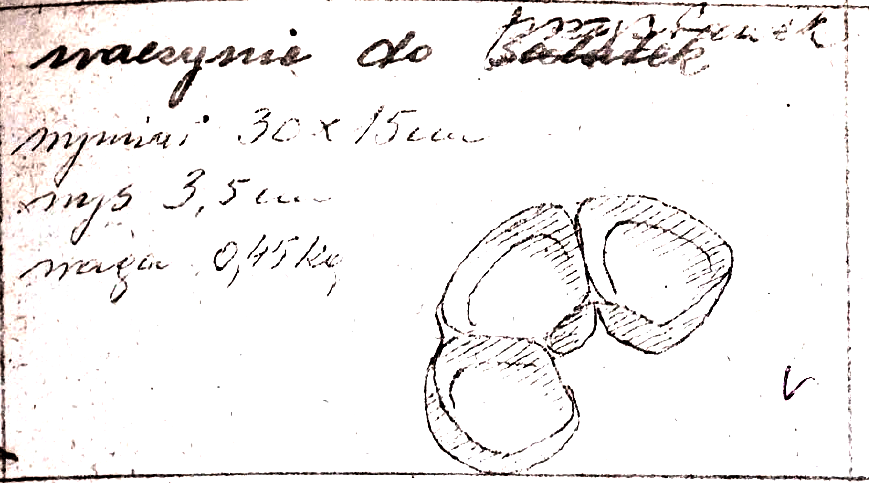 naczynie do sałatek
wymiar 30 x 15 cm
wys 3,5 cm
waga 0,45 kg